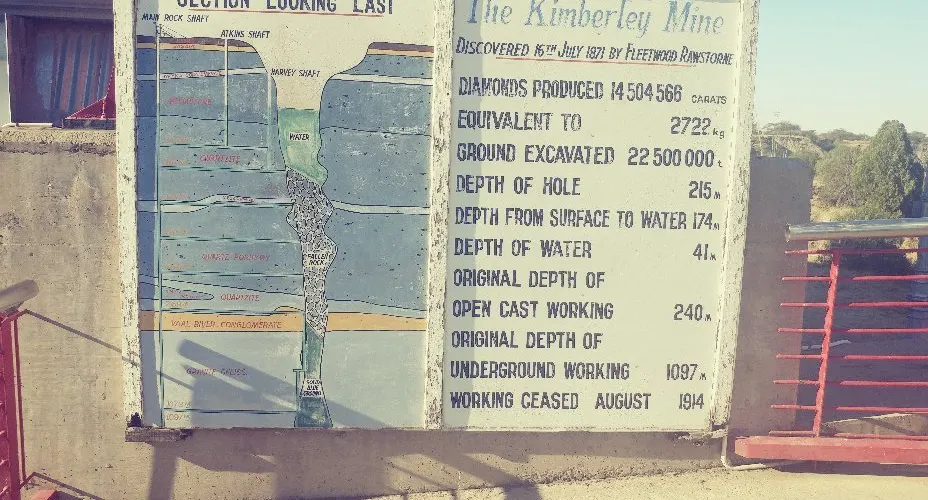 SECTION LOOKING EAST
MAIN ROCK SHAFT
ATKINS SHAFT
HARVEY SHAFT
WATER
QUARTZITE
FALLEN
ROCK
QUARTZ PORPHYRY
QUARTZITE
VAAL RIVER CONGLOMERATE
GRANITE GNEISS
SOLID
BLUE
GROUND
The Kimberley Mine
DISCOVERED 16TH JULY 1871 BY FLEETWOOD RAWSTORNE
DIAMONDS PRODUCED 14 504 566 CARATS
EQUIVALENT TO 2722 kg
GROUND EXCAVATED 22 500 000 t
DEPTH OF HOLE 215 M
DEPTH FROM SURFACE TO WATER 174 M
DEPTH OF WATER 41 M
ORIGINAL DEPTH OF
OPEN CAST WORKING 240 M
ORIGINAL DEPTH OF
UNDERGROUND WORKING 1097 M
WORKING CEASED AUGUST 1914